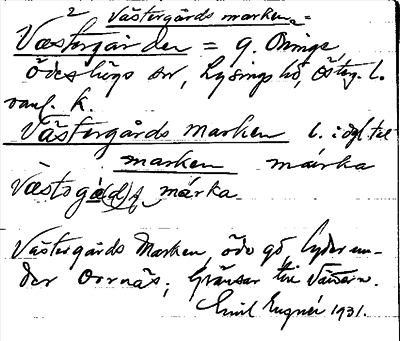 2 Västergårds marken =
Västergården = g. Öninge
Ödeshögs sn, Lysings hd, Österg. l.
vanl. k.
Västergårds marken l.
marken márka
márka
Västergårds Marken, öde gd, lyder un-
der Oornäs; Gränsar till Vättern.
Emil Eugnér 1931.